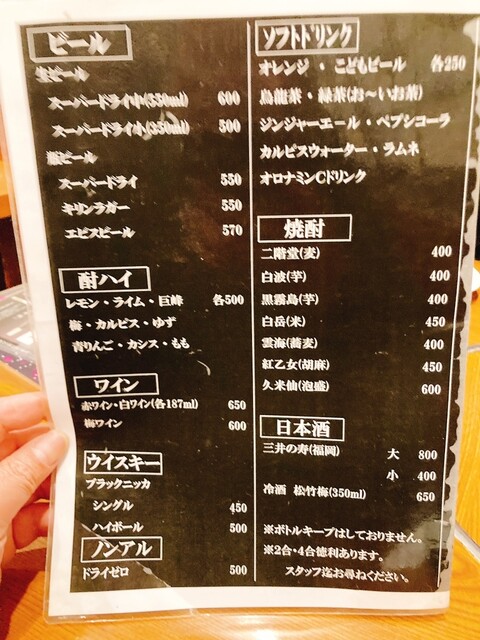 ビール
生ビール
スーパードライ中(550ml) 600
スーパードライ小(350ml) 500
瓶ビール
スーパードライ 550
キリンラガー 550
エビスビール 570
酎ハイ
レモン・ライム・巨峰 各500
梅・カルピス・ゆず
青りんご・カシス・もも
ワイン
赤ワイン・白ワイン(各187ml) 650
梅ワイン 600
ウイスキー
ブラックニッカ
シングル 450
ハイボール 500
ノンアル
ドライゼロ 500
ソフトドリンク
オレンジ・こどもビール 各250
烏龍茶・緑茶(お～いお茶)
ジンジャーエール・ペプシコーラ
カルピスウォーター・ラムネ
オロナミンCドリンク
焼酎
二階堂(麦) 400
白波(芋) 400
黒霧島(芋) 400
白岳(米) 450
雲海(蕎麦) 400
紅乙女(胡麻) 450
久米仙(泡盛) 600
日本酒
三井の寿(福岡) 大 800
小 400
冷酒 松竹梅(350ml) 650
※ボトルキープはしておりません。
※2合・4合徳利あります。
スタッフ迄お尋ねください。